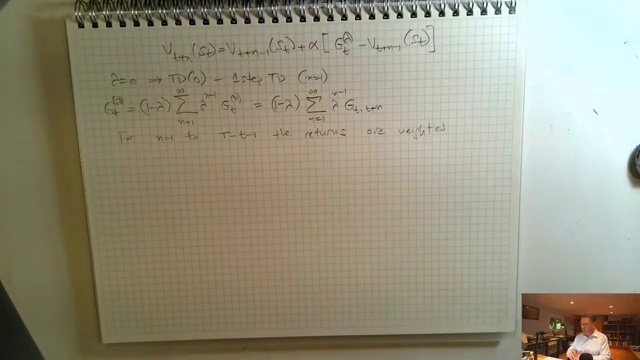 V_{t+n}(S_t) = V_{t+n-1}(S_t) + α[G_t^{(λ)} - V_{t+n-1}(S_t)]
λ=0 ⇒ TD(0) - 1 step TD (n=1)
G_t^{(λ)} = (1-λ) ∑_{n=1}^{∞} λ^{n-1} G_t^{(n)} = (1-λ) ∑_{n=1}^{∞} λ^{n-1} G_{t,t+n}
For n=1 to T-t-1 the returns are weighted